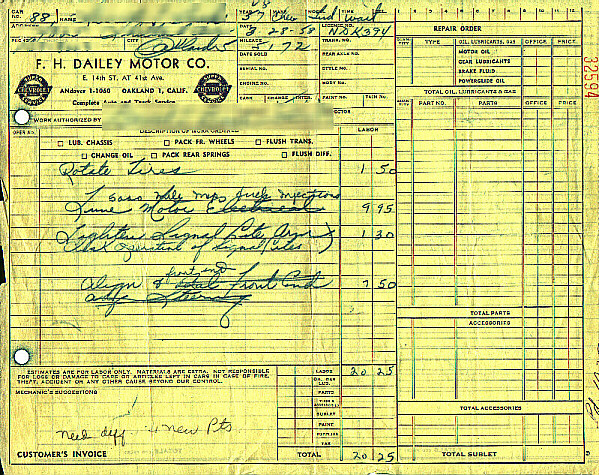 CAR NO. 88
NAME
YEAR 57
8-28-58 NDK394
MILEAGE 5172 TRANS. NO.
DATE SOLD REAR AXLE NO.
SERIAL NO. DELIVERY NO.
ENGINE NO. BODY NO.
PAINT NO. TRIM NO.
F. H. DAILEY MOTOR CO.
E. 14th ST. AT 41st Ave.
ANdover 1-1060 OAKLAND 1, CALIF.
Complete Auto and Truck Service
SUPER CHEVROLET SERVICE
SUPER CHEVROLET SERVICE
WORK AUTHORIZED BY
OPER. NO. DESCRIPTION OF WORK ORDERED LABOR
LUB. CHASSIS PACK FR. WHEELS FLUSH TRANS.
CHANGE OIL PACK REAR SPRINGS FLUSH DIFF.
Rotate Tires 1 50
5000 mile insp fuel injection
Tune Motor Electrical 9 95
Tighten Signal Lite Arm
Check Operation of Signal Lites 1 30
front end
Align & total Front End 7 50
adjs Steering
ESTIMATES ARE FOR LABOR ONLY. MATERIALS ARE EXTRA. NOT RESPONSIBLE
FOR LOSS OR DAMAGE TO CARS OR ARTICLES LEFT IN CARS IN CASE OF FIRE,
THEFT, ACCIDENT OR ANY OTHER CAUSE BEYOND OUR CONTROL.
MECHANIC'S SUGGESTIONS
need diff 4 new Pts
CUSTOMER'S INVOICE
LABOR 20 25
PARTS
SUBLET
PAINT
TAX
TOTAL 20 25
1 2 3 4 5 6 7 8 9 10 11 12
REPAIR ORDER
32594
QUANTITY TYPE OIL, LUBRICANTS, GAS OFFICE PRICE
MOTOR OIL
GEAR LUBRICANTS
BRAKE FLUID
POWERGLIDE OIL
TOTAL OIL, LUBRICANTS & GAS
QUANTITY PART NO. PARTS OFFICE PRICE
TOTAL PARTS
ACCESSORIES
TOTAL ACCESSORIES
TOTAL SUBLET